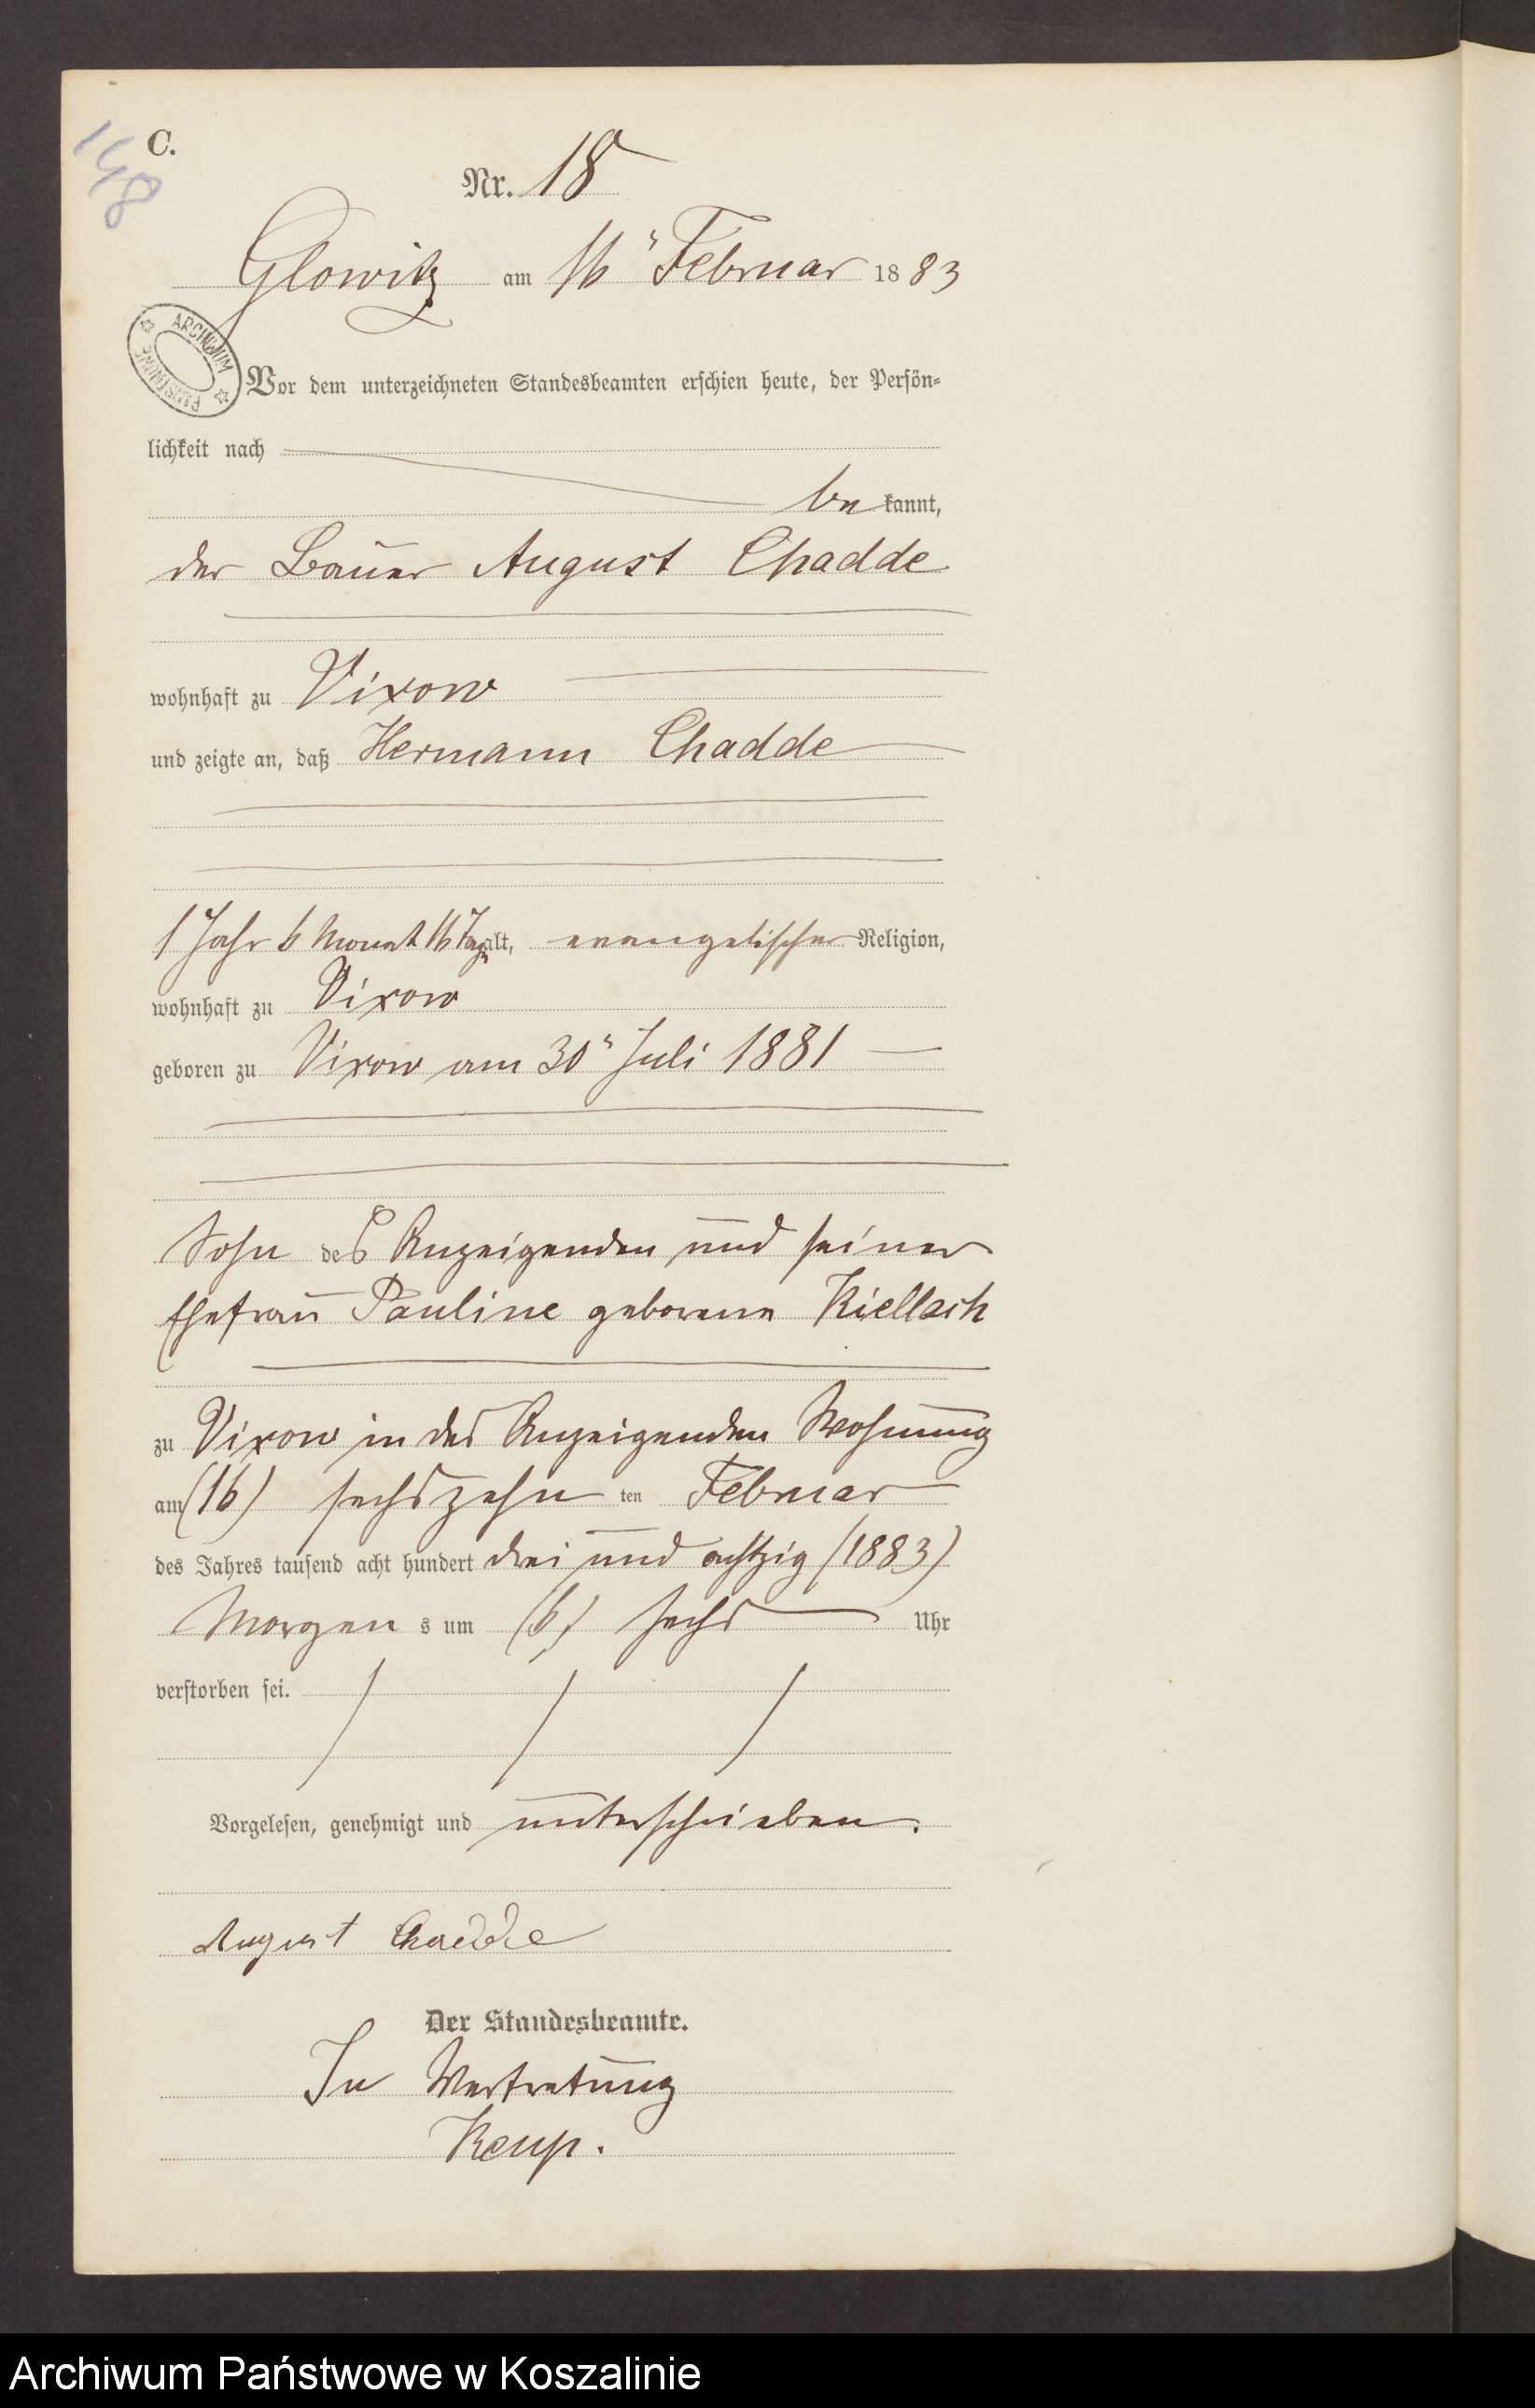 148
C.
Nr. 18
Glowitz am 16" Februar 1883
ARCHIWUM PAŃSTWOWE
Vor dem unterzeichneten Standesbeamten erschien heute, der Persön-
lichkeit nach
bekannt,
der Bauer August Chadde
wohnhaft zu Vixow
und zeigte an, daß Hermann Chadde
1 Jahr 6 Monat 16 Tage alt, evangelischer Religion,
wohnhaft zu Vixow
geboren zu Vixow am 30" Juli 1881
Sohn des Anzeigenden und seiner
Ehefrau Pauline geborene Kiellach
zu Vixow in des Anzeigenden Wohnung
am (16) sechszehn ten Februar
des Jahres tausend acht hundert drei und achtzig (1883)
Morgens um (6) sechs Uhr
verstorben sei.
Vorgelesen, genehmigt und unterschrieben.
August Chadde
Der Standesbeamte.
In Vertretung
Keup.
Archiwum Państwowe w Koszalinie